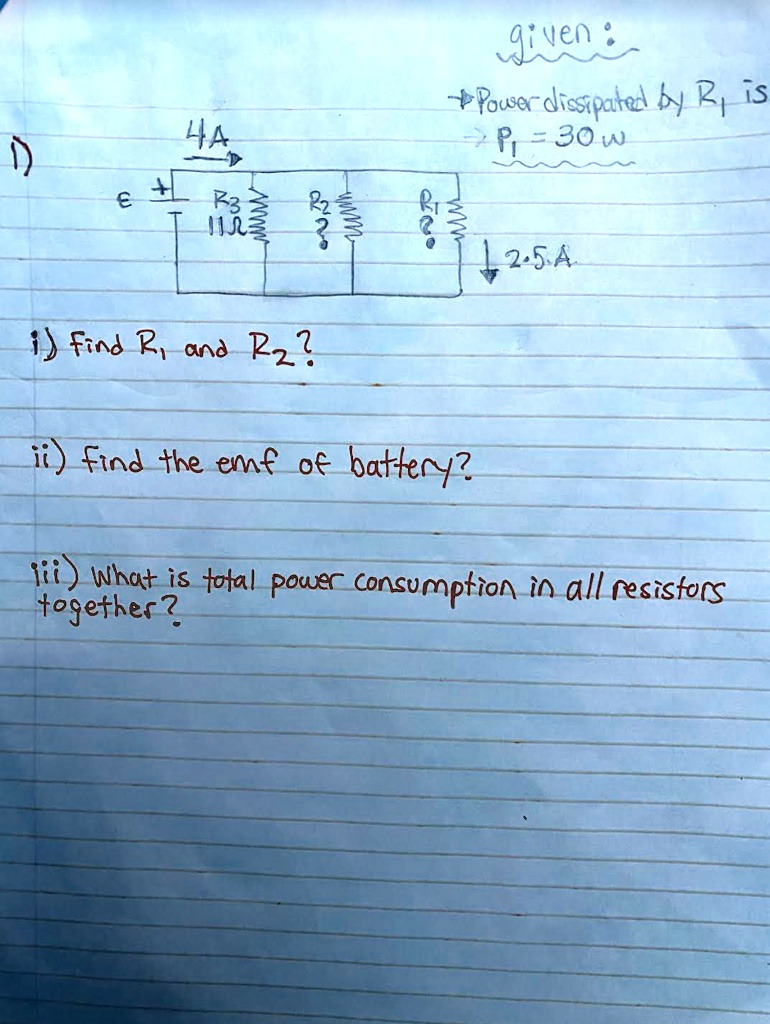 given :
→ Power dissipated by R₁ is
→ P₁ = 30 w
1)
4A
ε + R3 R2 R1
11Ω ? ?
↓ 2.5 A
i) find R₁ and R₂?
ii) find the emf of battery?
iii) What is total power consumption in all resistors
together?